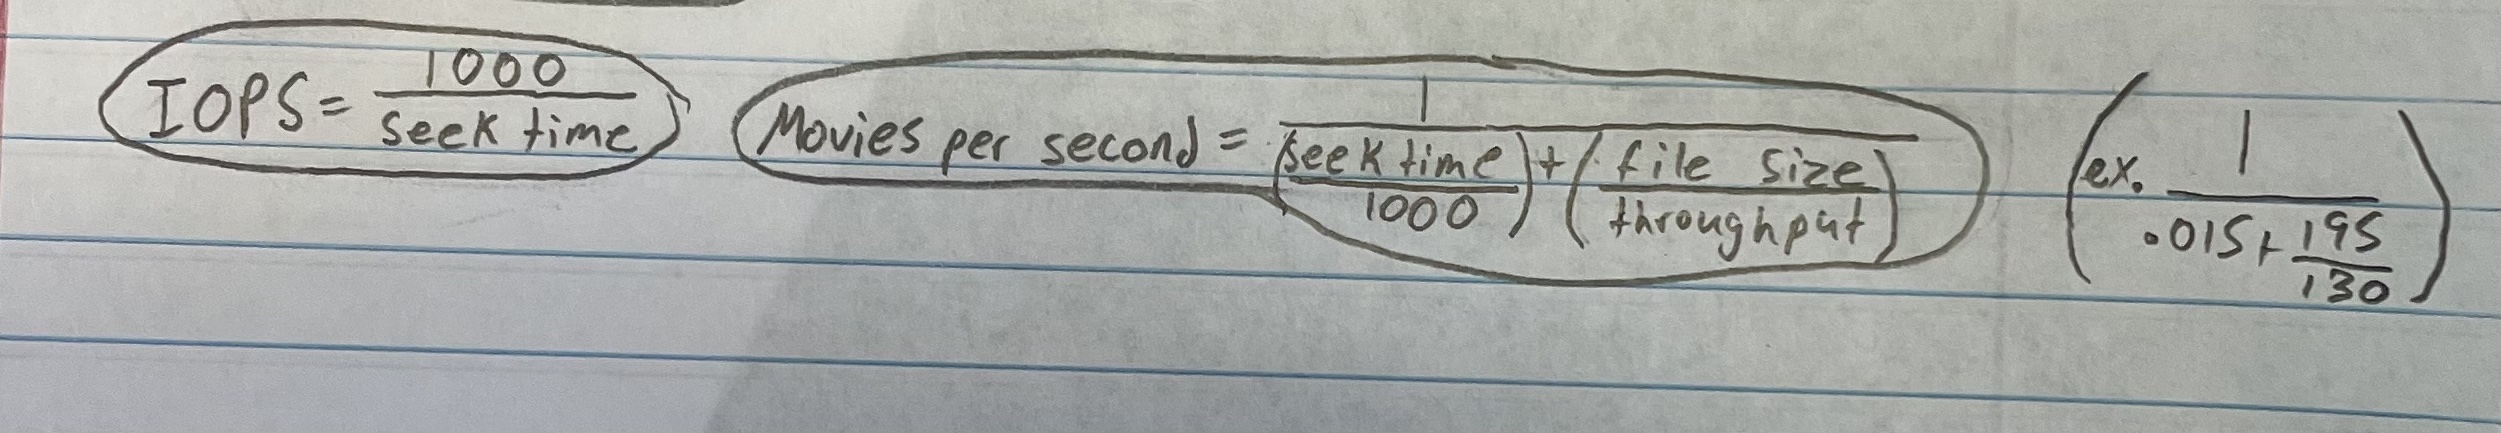 IOPS = 1000 / seek time
Movies per second = 1 / (seek time / 1000) + (file size / throughput)
(ex. 1 / .015 + 195 / 130)